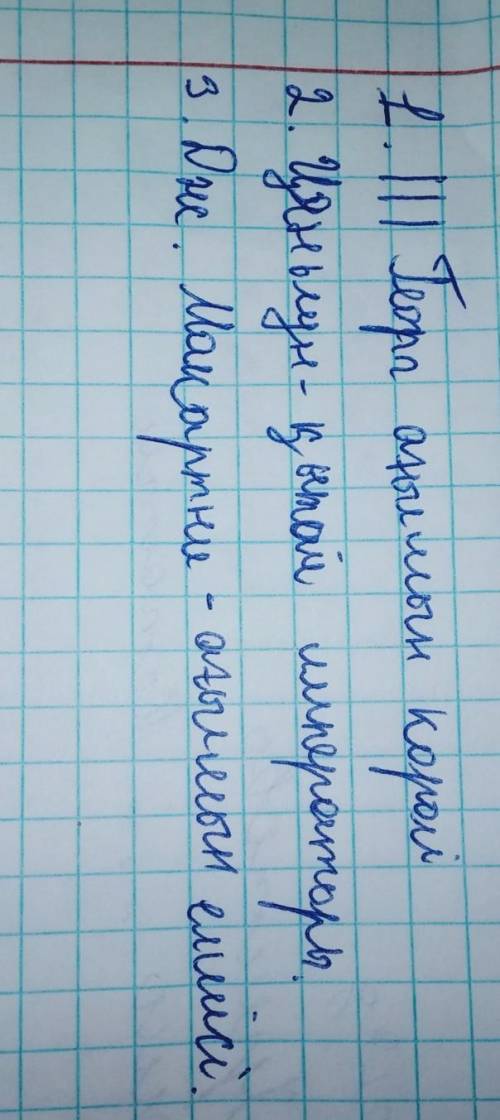 1. III Георг ағылшын королі
2. Цяньлун - қытай императоры.
3. Дж. Макартни - ағылшын елшісі.